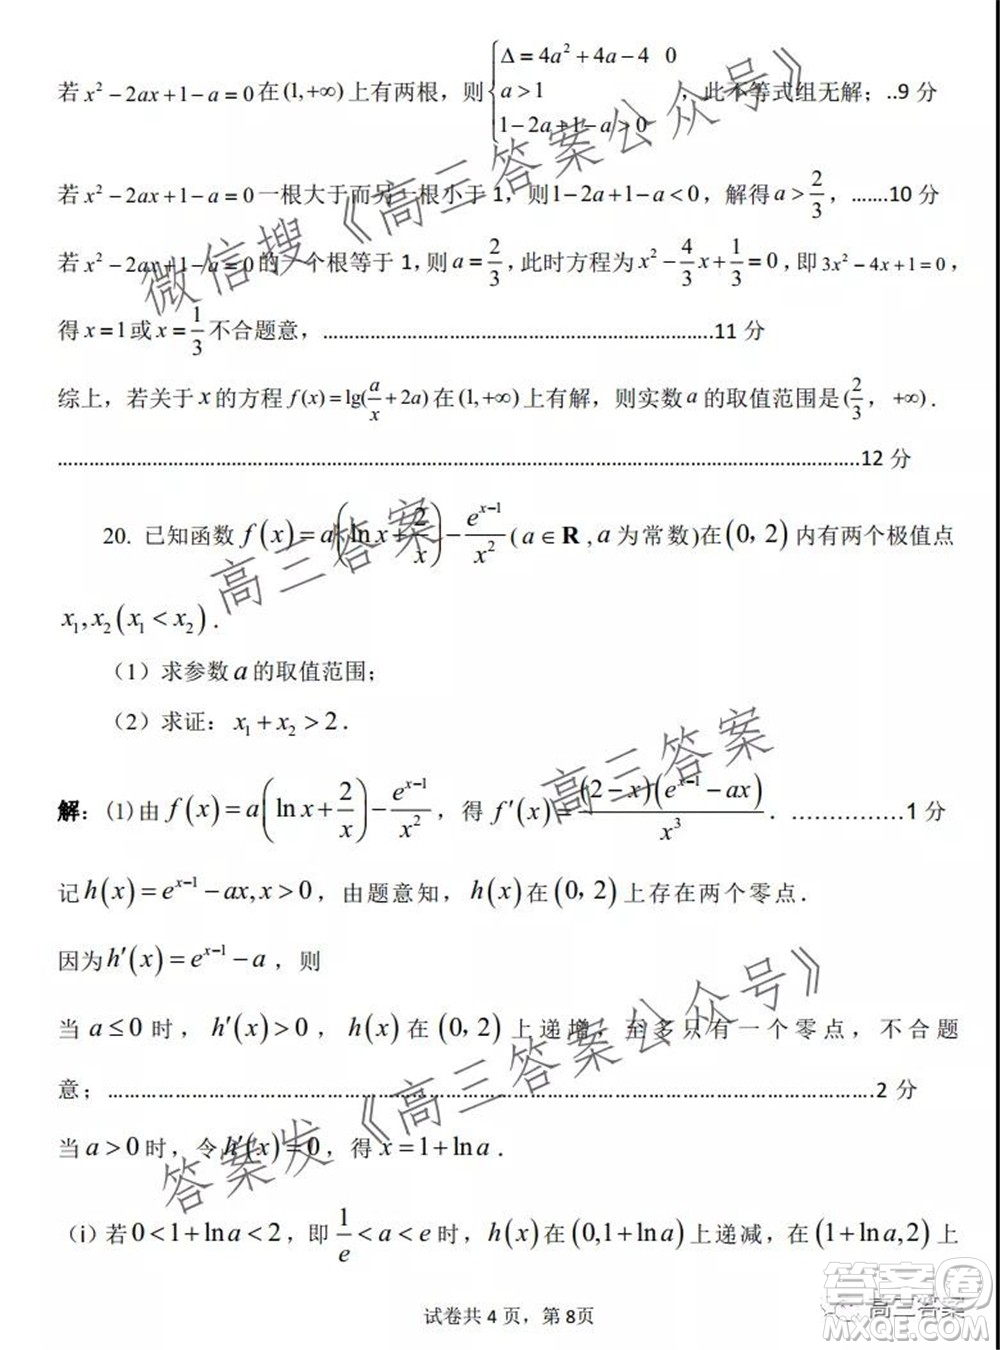 若 x² − 2ax + 1 − a = 0 在 (1, +∞) 上有两根，则 { Δ = 4a² + 4a − 4  0
a > 1
1 − 2a + 1 − a > 0 ，此不等式组无解；..9 分
若 x² − 2ax + 1 − a = 0 一根大于而另一根小于 1，则 1 − 2a + 1 − a < 0，解得 a > 2/3，.......10 分
若 x² − 2ax + 1 − a = 0 的一个根等于 1，则 a = 2/3，此时方程为 x² − 4/3 x + 1/3 = 0，即 3x² − 4x + 1 = 0，
得 x = 1 或 x = 1/3 不合题意，……………………………………………………………………11 分
综上，若关于 x 的方程 f(x) = lg(a/x + 2a) 在 (1, +∞) 上有解，则实数 a 的取值范围是 (2/3，+∞)．
……………………………………………………………………………………………………12 分
20. 已知函数 f(x) = a(ln x + 2/x) − e^(x−1)/x² (a ∈ R , a 为常数)在 (0，2) 内有两个极值点
x₁, x₂ (x₁ < x₂)．
（1）求参数 a 的取值范围；
（2）求证：x₁ + x₂ > 2．
解：(1) 由 f(x) = a(ln x + 2/x) − e^(x−1)/x²，得 f′(x) = (2 − x)(e^(x−1) − ax)/x³．……………1 分
记 h(x) = e^(x−1) − ax, x > 0，由题意知，h(x) 在 (0，2) 上存在两个零点．
因为 h′(x) = e^(x−1) − a，则
当 a ≤ 0 时，h′(x) > 0，h(x) 在 (0，2) 上递增，至多只有一个零点，不合题
意；……………………………………………………………………………………2 分
当 a > 0 时，令 h′(x) = 0，得 x = 1 + ln a．
（i）若 0 < 1 + ln a < 2，即 1/e < a < e 时，h(x) 在 (0,1 + ln a) 上递减，在 (1 + ln a,2) 上
试卷共 4 页，第 8页
微信搜《高三答案公众号》
高三答案
高三答案
答案发《高三答案公众号》
高三答案
答案卷
MXQE.COM